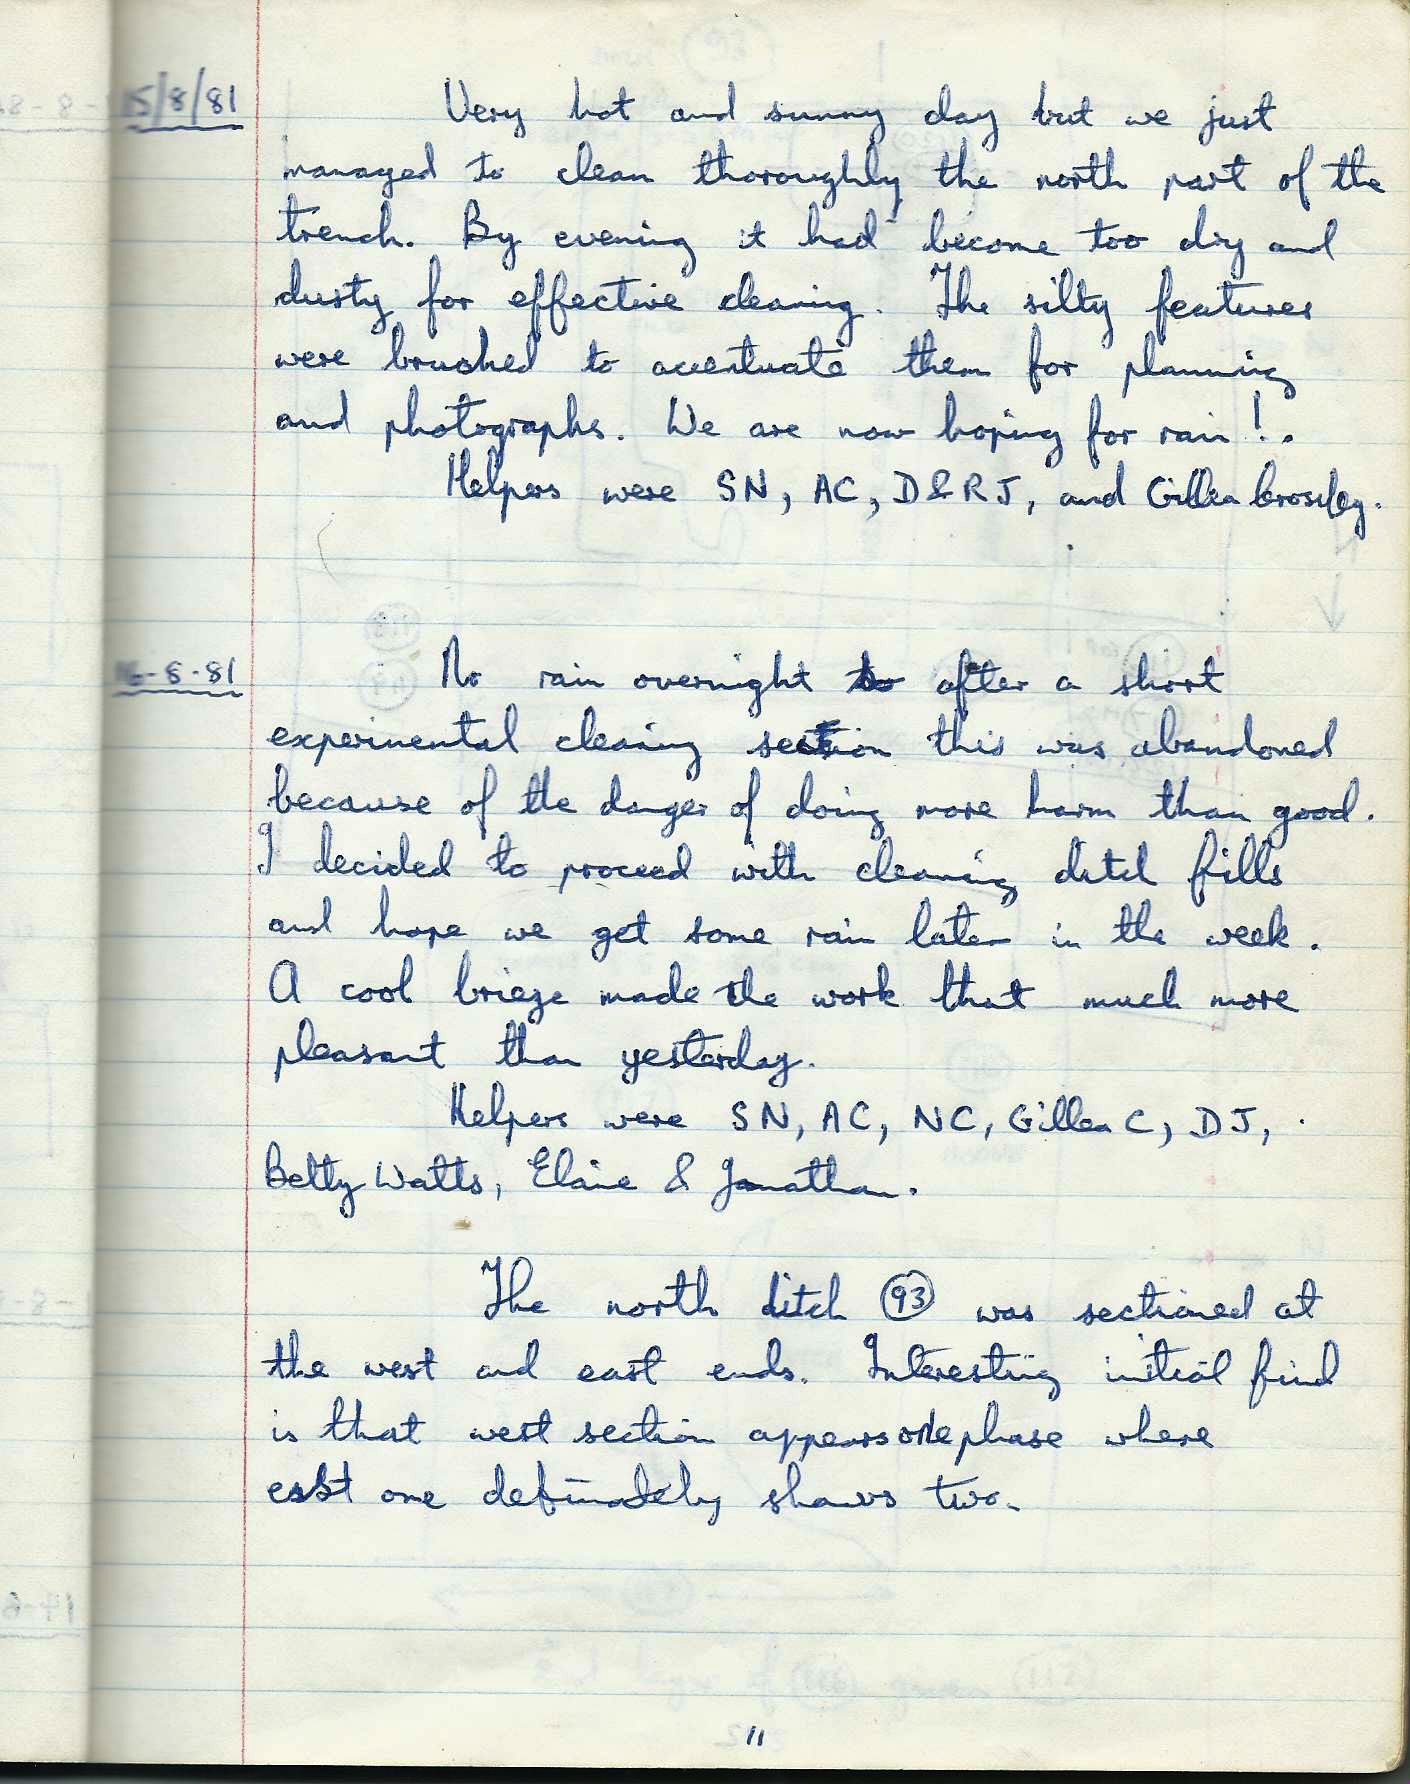 15/8/81 Very hot and sunny day but we just
managed to clean thoroughly the north part of the
trench. By evening it had become too dry and
dusty for effective cleaning. The silty features
were brushed to accentuate them for planning
and photographs. We are now hoping for rain!.
Helpers were SN, AC, D&RJ, and Gillea Crossley.
16-8-81 No rain overnight so after a short
experimental cleaning section this was abandoned
because of the danger of doing more harm than good.
I decided to proceed with cleaning ditch fills
and hope we get some rain later in the week.
A cool brieze made the work that much more
pleasant than yesterday.
Helpers were SN, AC, NC, Gillea C, DJ,
Betty Watts, Elaine & Jonathan.
The north ditch 93 was sectioned at
the west and east ends. Interesting initial find
is that west section appears one phase where
east one definately shows two.
11